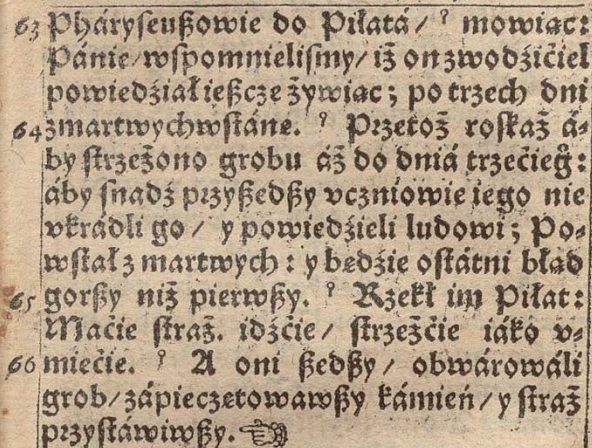 63 Pháryſeuſzowie do Piłatá / ˀ mowiąc:
Pánie / wſpomnieliſmy / iż on zwodźićiel
powiedźiał ieſzcze żywiąc; po trzech dni
64 zmartwychwſtánę. ˀ Przetoż roſkaż á-
by ſtrzeżono grobu áż do dniá trzećieg̊:
áby ſnadź przyſzedſzy vczniowie iego nie
vkrádli go / y powiedźieli ludowi; Po-
wſtał z martwych: y będźie oſtátni błąd
65 gorſzy niż pierwſzy. ˀ Rzekł im Piłat:
Maćie ſtraż. idźćie / ſtrzeżćie iáko v-
66 miećie. ˀ A oni ſzedſzy / obwárowáli
grob / zápieczętowawſzy kámień / y ſtraż
przyſtáwiwſzy. ☜